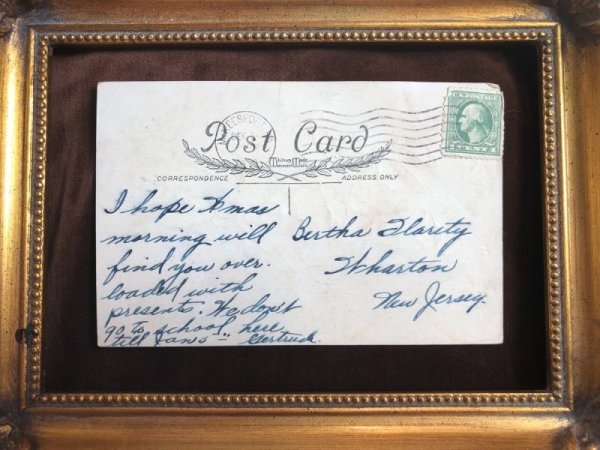 U.S. POSTAGE
Post Card
CORRESPONDENCE
ADDRESS ONLY
I hope Xmas
morning will
find you over
loaded with
presents. We don't
go to school here
till Jan
Gertrude
Bertha Flarity
Wharton
New Jersey.